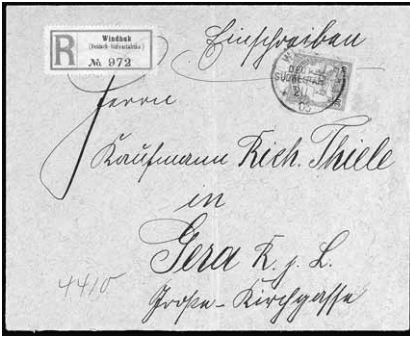 Windhuk
(Deutsch-Südwestafrika)
R
No 972
Einschreiben
Herrn
Kaufmann Rich. Thiele
in
Gera R. j. L.
Große-Kirchgasse
4410